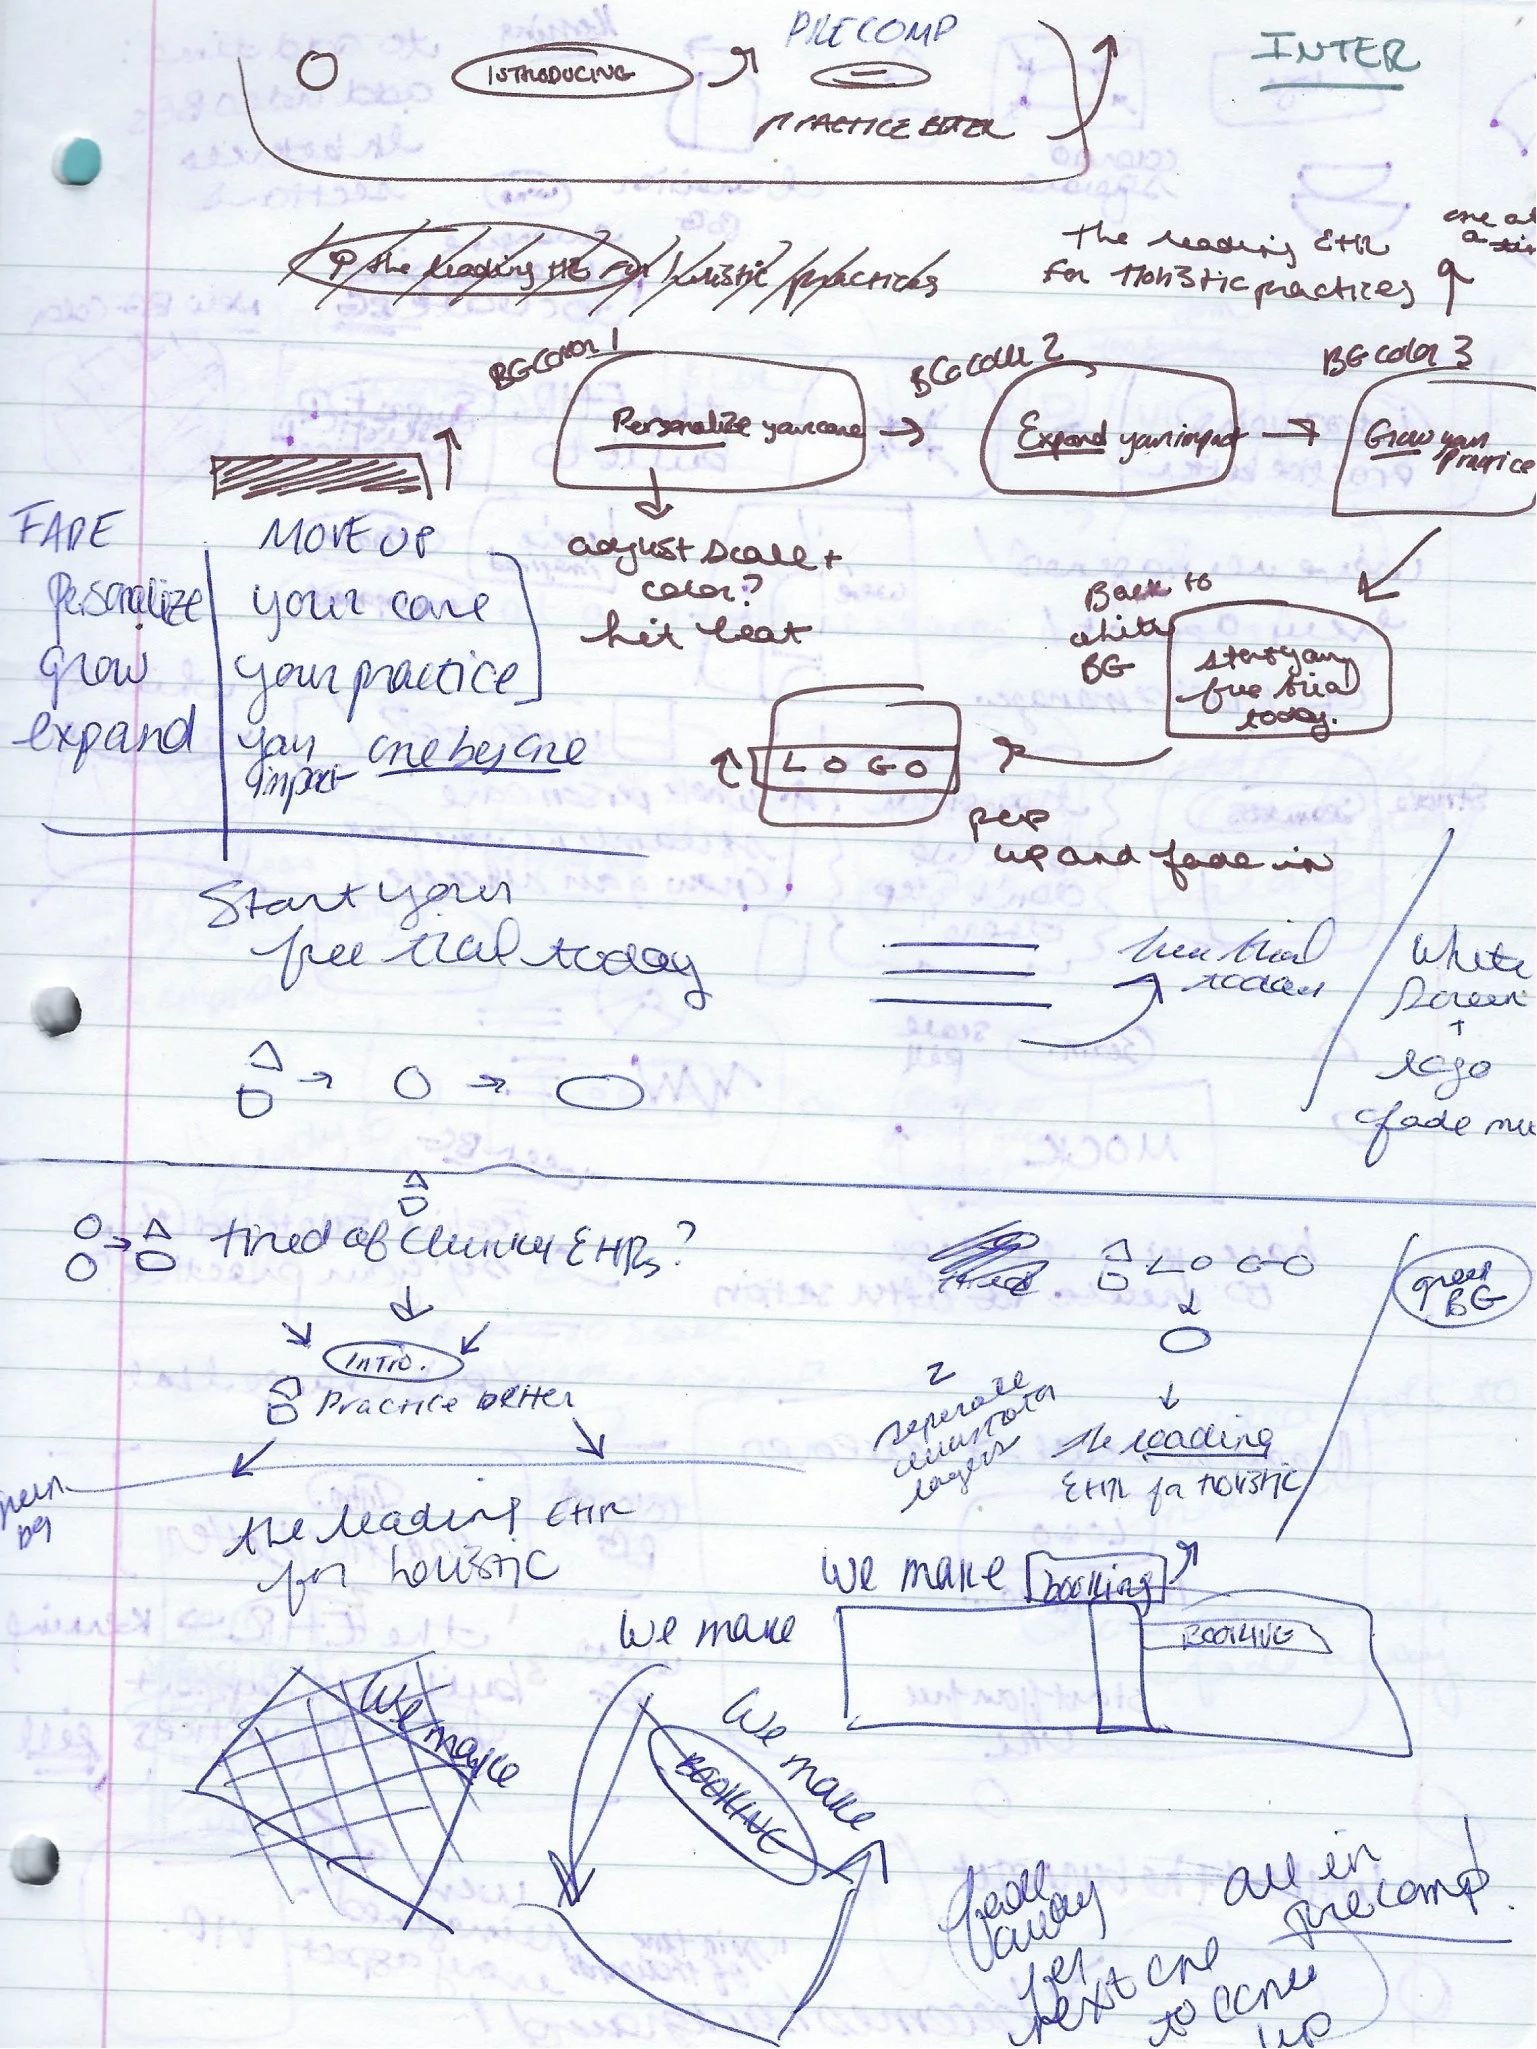 PRECOMP
INTER
INTRODUCING
PRACTICE BETTER
the leading EHR
for Holistic practices
one at
a
the leading
practices
BG COLOR 1
BG COLOR 2
BG COLOR 3
Personalize your care
Expand your impact
Grow your
Practice
FADE
MOVE UP
personalize
your care
grow
your practice
expand
your
impact
one by one
adjust scale +
color?
hit beat
Back to
white
BG
start your
free trial
today.
LOGO
pop
up and fade in
Start your
free trial today
free trial
today
white
screen
+
logo
fade
tired of clunky EHRs?
Intro.
Practice better
LOGO
green
BG
2
separate
illustrator
layers
the leading
EHR for holistic
green
bg
the leading EHR
for holistic
we make booking
BOOKING
we make
we make
We make
BOOKING
fade
away
for
next one
to come
up
all in
precomp!